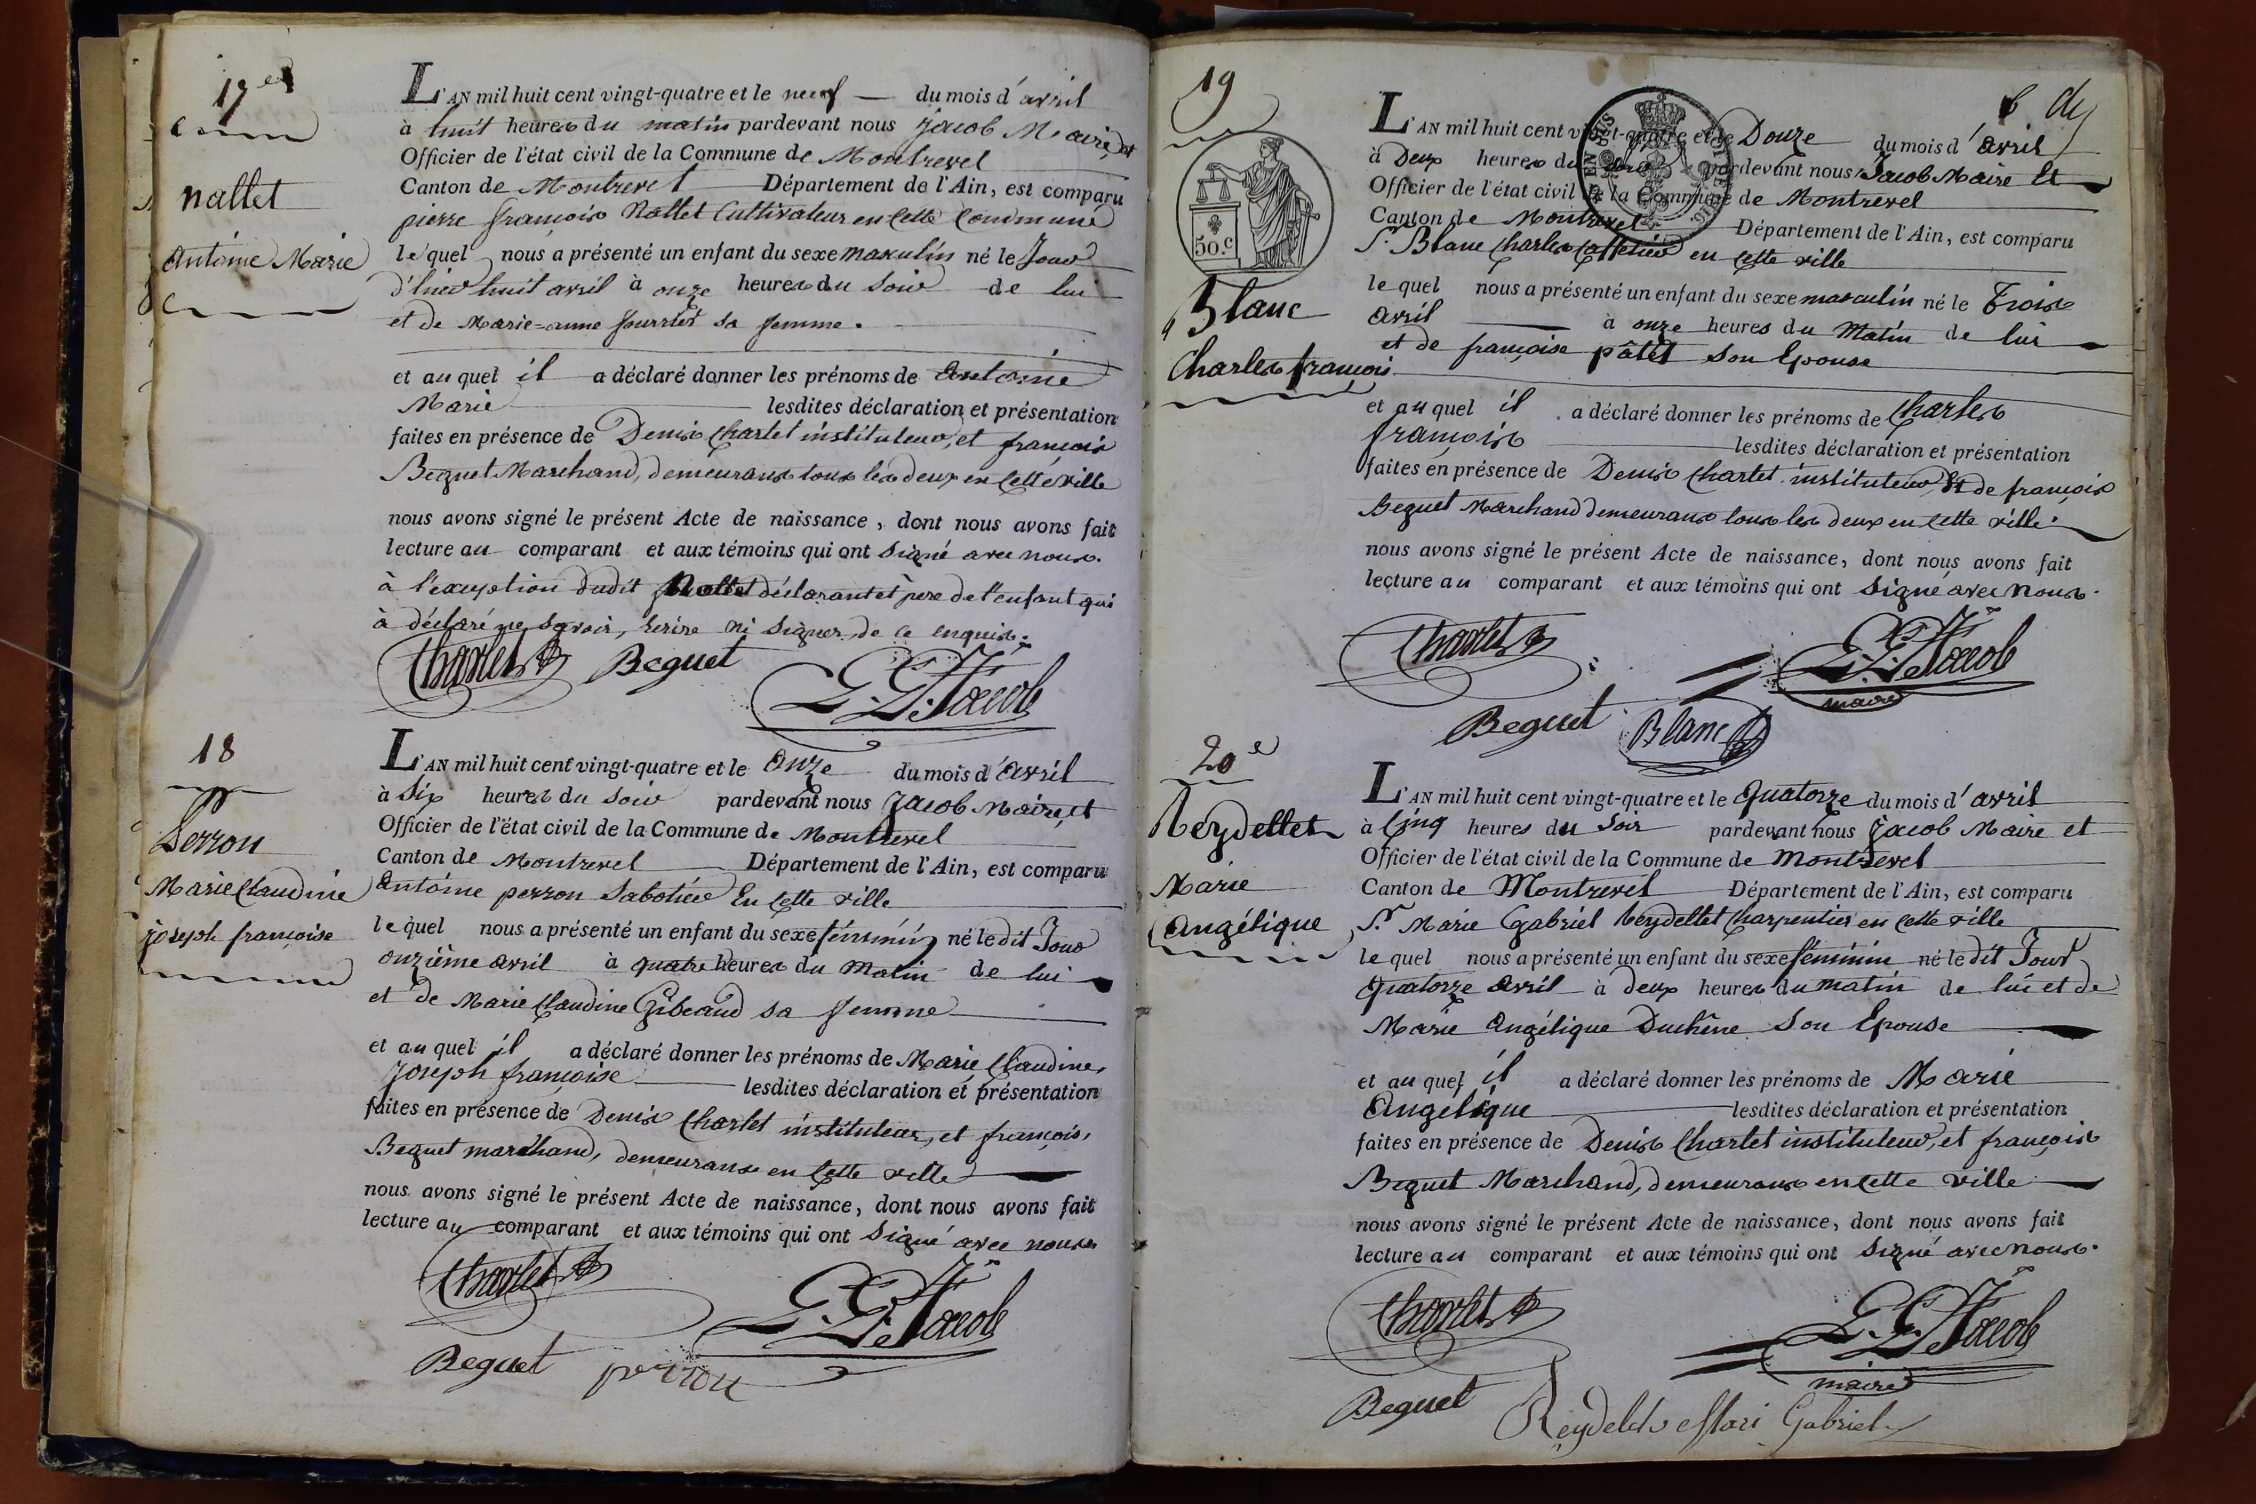 17e
nallet
Antoine Marie
L'AN mil huit cent vingt-quatre et le neuf du mois d'avril
à huit heures du matin pardevant nous Jacob Maire, et
Officier de l'état civil de la Commune de Montrevel
Canton de Montrevel Département de l'Ain, est comparu
pierre françois Nallet Cultivateur en cette Commune
lequel nous a présenté un enfant du sexe masculin né le Jour
d'hier huit avril à onze heures du soir de lui
et de Marie-anne sa femme.
et auquel il a déclaré donner les prénoms de Antoine
Marie lesdites déclaration et présentation
faites en présence de Denis Charlet instituteur, et françois
Beguet Marchand, demeurans tous les deux en cette ville
nous avons signé le présent Acte de naissance, dont nous avons fait
lecture au comparant et aux témoins qui ont signé avec nous.
à l'exception dudit Nallet déclarant et père de l'enfant qui
à déclaré ne savoir, Ecrire ni signer, de ce enquis.
Charlet Beguet
G. G. Jacob
18
Perron
Marie Claudine
joseph françoise
L'AN mil huit cent vingt-quatre et le onze du mois d'avril
à Six heures du soir pardevant nous Jacob Maire, et
Officier de l'état civil de la Commune de Montrevel
Canton de Montrevel Département de l'Ain, est comparu
Antoine perron Sabotier En cette ville
lequel nous a présenté un enfant du sexe féminin né ledit Jour
onzième avril à quatre heures du Matin de lui
et de Marie Claudine Gibeaud sa femme
et auquel il a déclaré donner les prénoms de Marie Claudine,
Joseph françoise lesdites déclaration et présentation
faites en présence de Denis Charlet instituteur, et françois,
Beguet marchand, demeurans en cette ville
nous avons signé le présent Acte de naissance, dont nous avons fait
lecture au comparant et aux témoins qui ont signé avec nous
Charlet
G. G. Jacob
Beguet perron
19
50.c
Blanc
Charles françois
L'AN mil huit cent vingt-quatre et le Douze du mois d'avril
à Deux heures du pardevant nous Jacob Maire Et
Officier de l'état civil de la Commune de Montrevel
Canton de Montrevel Département de l'Ain, est comparu
Sr. Blanc Charles Caffetier en cette ville
lequel nous a présenté un enfant du sexe masculin né le Trois
avril à onze heures du Matin de lui
et de françoise pâtet son Epouse
et auquel il a déclaré donner les prénoms de Charles
françois lesdites déclaration et présentation
faites en présence de Denis Charlet instituteur, Et de françois
Beguet Marchand demeurans tous les deux en cette ville.
nous avons signé le présent Acte de naissance, dont nous avons fait
lecture au comparant et aux témoins qui ont signé avec nous.
Charlet
G. G. Jacob
maire
Beguet Blanc
20e
Reydellet
Marie
Angélique
L'AN mil huit cent vingt-quatre et le quatorze du mois d'avril
à Cinq heures du soir pardevant nous Jacob Maire et
Officier de l'état civil de la Commune de Montrevel
Canton de Montrevel Département de l'Ain, est comparu
Sr. Marie Gabriel Reydellet Charpentier en cette ville
lequel nous a présenté un enfant du sexe féminin né ledit Jour
quatorze avril à deux heures du matin de lui et de
Marie Angélique Duchêne son Epouse
et auquel il a déclaré donner les prénoms de Marie
Angélique lesdites déclaration et présentation
faites en présence de Denis Charlet instituteur, et françois
Beguet Marchand, demeurans en cette ville
nous avons signé le présent Acte de naissance, dont nous avons fait
lecture au comparant et aux témoins qui ont signé avec nous.
Charlet
G. G. Jacob
maire
Beguet
Gabriel